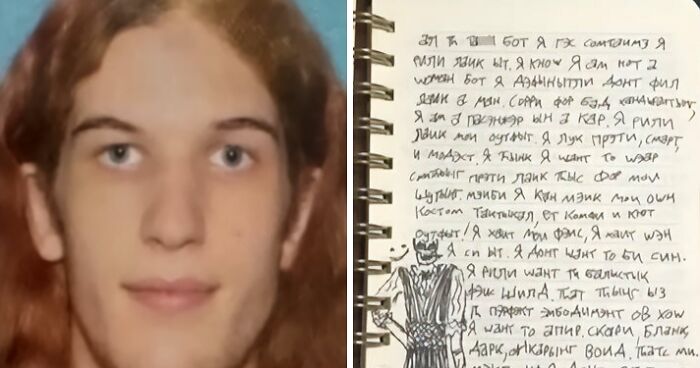 БОТ Я ГЭС СОМТАИМЗ Я
РИЛИ ЛАИК ЫТ. Я КНОW Я АМ НОТ А
WОМАН БОТ Я ДЭФЫНЫТЛИ ДОНТ ФИЛ
ЛАИК А МАН. СОРРИ ФОР БАД
Я АМ А ПАСЭНЖЭР ЫН А КАР. Я РИЛИ
ЛАИК МОИ ОУТФЫТ. Я ЛУК ПРЭТИ, СМАРТ,
И МОДЭСТ. Я ҺЫНК Я WАНТ ТО WЭАР
ПРЭТИ ЛАИК ҺЫС ФОР МОИ
ШУТЫНГ. МЭИБИ Я КАН МЭИК МОИ ОШН
КОСТОМ ТАКТЫКАЛ, ЕТ КОМФИ И КЮТ
ОУТФЫТ! Я ХАИТ МОИ ФЭИС, Я ХАИТ WЭН
Я СИ ЫТ. Я ДОНТ WАНТ ТО БИ СИН.
Я РИЛИ WАНТ БАЛИСТИК
ФЭИС ШИЛД. ҺАТ ҺЫНГ ЫЗ
ПЭРФЭКТ ЭМБОДИМЭНТ ОВ ХОW
Я WАНТ ТО АПИР. СКЭРИ, БЛАНК,
ДАРК, ВОИД. ҺАТС МИ.